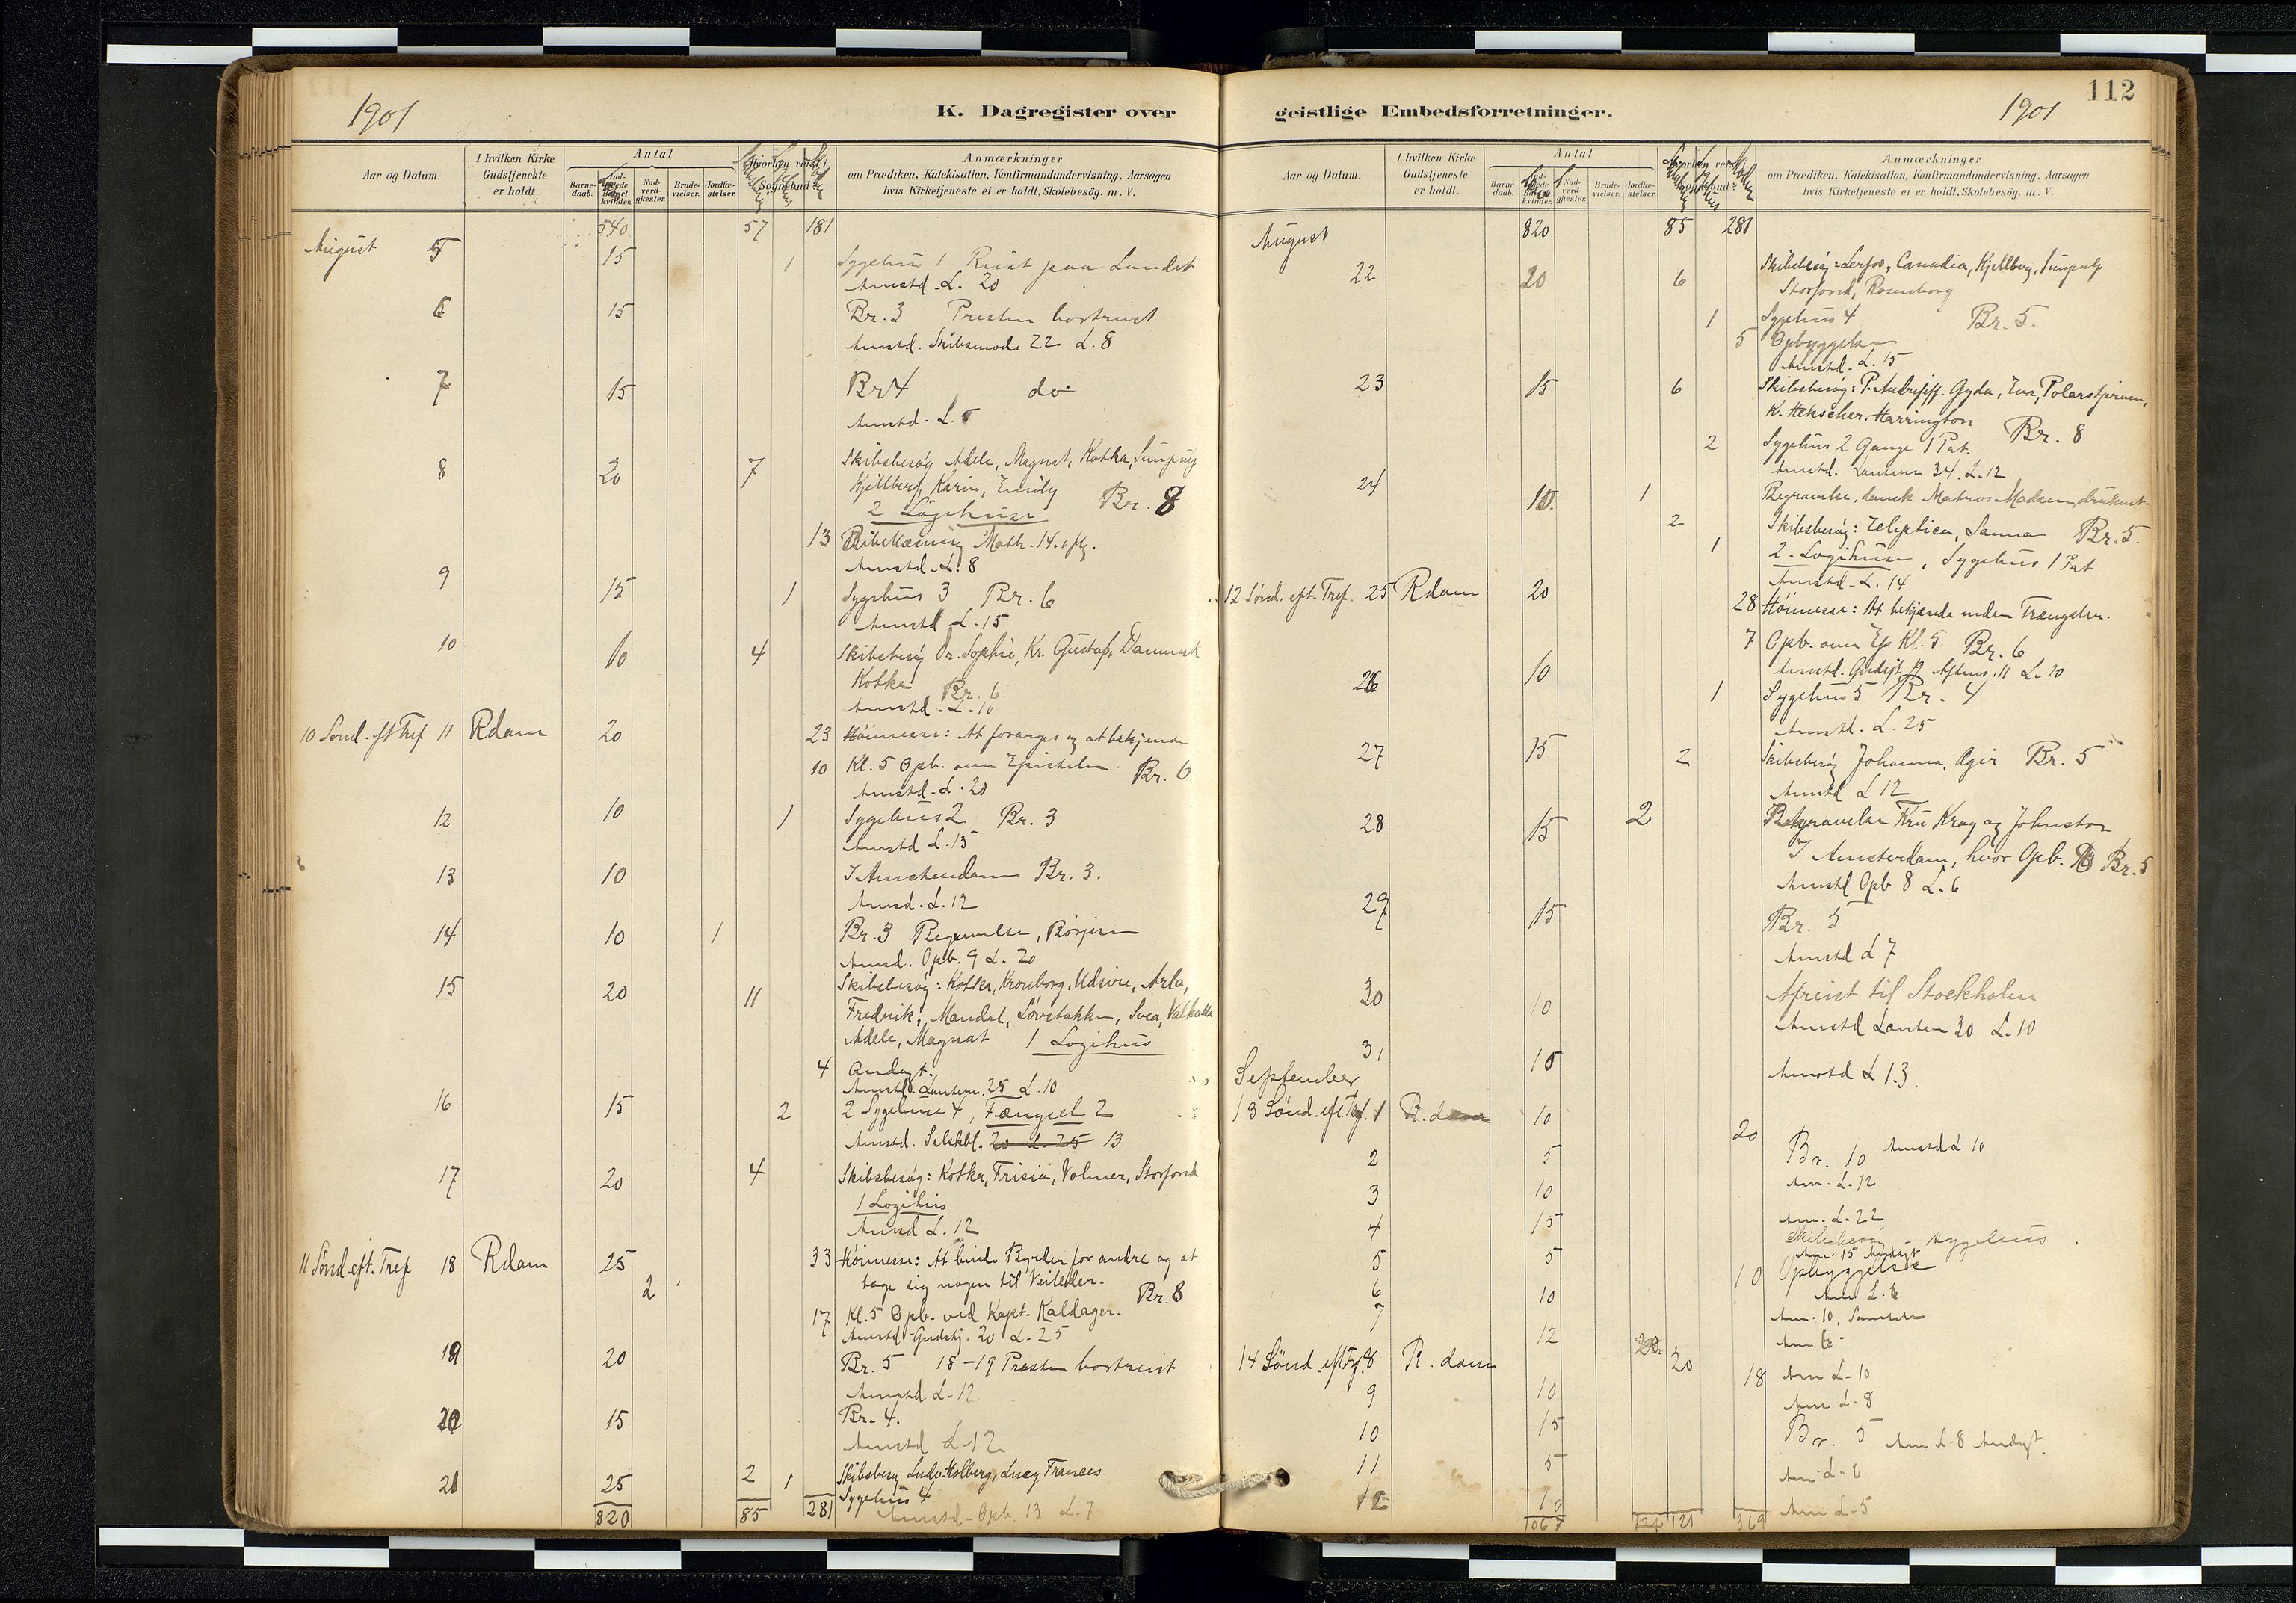 1901
K. Dagregister over
Aar og Datum.
I hvilken Kirke Gudstjeneste er holdt.
Antal
Barne-daab.
Nad-verd-gjæster.
Brude-vielser.
Jordfæ-stelser.
Anmærkninger
om Prædiken, Katekisation, Konfirmandundervisning. Aarsagen
hvis Kirketjeneste ei er holdt. Skolebesøg. m. V.
540 57 181
August 5 15 1 Sygehus 1 Reist paa Landet
Amstd. L. 20
6 15 Br. 3 Presten bortreist
Amstd. 22 L. 8
7 15 Br 4 do
Amstd. L. 5
8 20 7 Skibsbesøg Adele, Magnat, Kotka,
Kjellberg, Karin, Emily Br. 8
2 Logihuse
13 Bibellæsning Math. 14.
Amstd. L. 8
9 15 1 Sygehus 3 Br. 6
Amstd L. 15
10 10 4 Skibsbesøg Dr. Sophie, Kr. Gustaf, Danmark
Kotka Br. 6.
Amstd. L. 10
10 Sønd. eft Tref 11 Rdam 20 23 Høimesse: At forarges og at bekjende
10 Kl. 5 Opb. over Epistelen. Br. 6
Amstd. L. 20
12 10 1 Sygehus 2 Br. 3
Amstd L. 15
13 10 I Amsterdam Br. 3.
Amsd. L. 12
14 10 1 Br. 3 Begravelse, Börjesen
Amsd. Opb. 9 L. 20
15 20 11 Skibsbesøg: Kotka, Kronborg, Udsire, Arla,
Fredrik, Mandal, Løvstakken, Svea, Valhalla
Adele, Magnat 1 Logihus
4 Andagt.
Amstd. Lantern. 25 L. 10
16 15 2 2 Sygehuse 4, Fængsel 2
Amstd. Selskbl. 20 L. 25 13
17 20 4 Skibsbesøg: Kotka, Frisia, Volmer, Storfond
1 Logihus
Amsd L. 12
11 Sønd. eft. Tref 18 Rdam 25 33 Høimesse: At binde Byrder for andre og at
2 tage sig nogen til Veileder. Br. 8
17 Kl. 5 Opb. ved Kapt. Kaldager.
Amstd Gudstj. 20 L. 25
19 20 Br. 5 18-19 Presten bortreist
Amstd L. 12
20 15 Br. 4.
Amstd L 12
21 25 2 1 Skibsbesøg Ludv. Holberg, Lucy Frances
Sygehus 4
820 85 281 Amstd. Opb. 13 L. 7
112
geistlige Embedsforretninger.
1901
Aar og Datum.
I hvilken Kirke Gudstjeneste er holdt.
Antal
Barne-daab.
Nad-verd-gjæster.
Brude-vielser.
Jordfæ-stelser.
Anmærkninger
om Prædiken, Katekisation, Konfirmandundervisning. Aarsagen
hvis Kirketjeneste ei er holdt. Skolebesøg. m. V.
August 820 85 281
22 20 6 Skibsbesøg: Lerfos, Canadia, Kjellberg,
Storfond, Rosenborg
1 Sygehus 4 Br. 5.
5 Opbyggelse
Amstd. L. 15
23 15 6 Skibsbesøg: Gyda, Eva, Polarstjernen,
K. Hekscher. Harrington Br. 8
2 Sygehus 2 Gange 1 Pat.
Amstd. Lantern 34. L. 12
24 10 1 Begravelse, dansk Matros Madsen, druknet.
2 Skibsbesøg: Sanna Br. 5.
1 2 Logihuse, Sygehus 1 Pat
Amstd. L. 14
12 Sønd. eft. Tref. 25 Rdam 20 28 Høimesse: At bekjende under Trængsler.
7 Opb. over Ep Kl. 5 Br. 6
Amstd. Gudstj 19 11 L. 20
26 10 1 Sygehus 5 Br. 4
Amstd. L. 25
27 15 2 Skibsbesøg Johanna, Ægir Br. 5
Amstd L 12
28 15 2 Begravelse Fru Krag og Johnston
I Amsterdam, hvor Opb. Br. 5
Amstd Opb 8 L. 6
29 15 Br. 5
Amstd L 7
30 10 Afreist til Stockholm
Amstd Lantern 30 L. 10
31 10 Amstd L 13.
September
13 Sønd. eft Tref. 1 R. dam 10 20
Br. 10 Amstd L 10
2 5 Am. L. 12
3 10 Am. L. 22
4 15 Skibsbesøg - sygehus.
Am. 15 Andagt
5 5 10 Opbyggelse
Am L. 8
6 10 Am. 10,
7 12 Am 6
14 Sønd. eft Tref. 8 R. dam 20 18 Am L. 10
9 10 Am L. 8
10 15 Br. 5 Am L. 8 Andagt.
11 5 Am L. 6
12 10 Am L. 5
1067 121 369